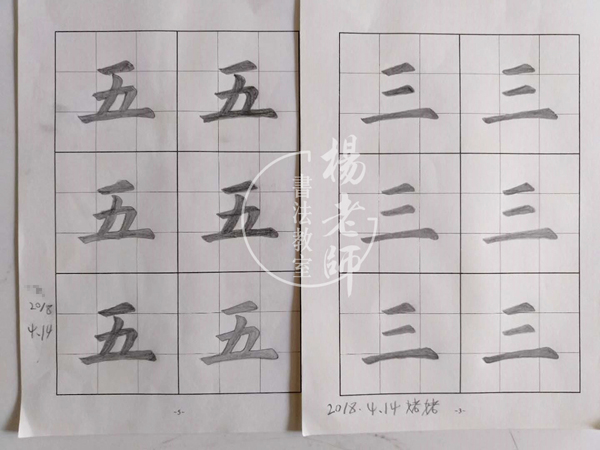 五 五
五 五
五 五
2018
4.14
-5-
三 三
三 三
三 三
2018.4.14
-3-
楊老師
書法教室